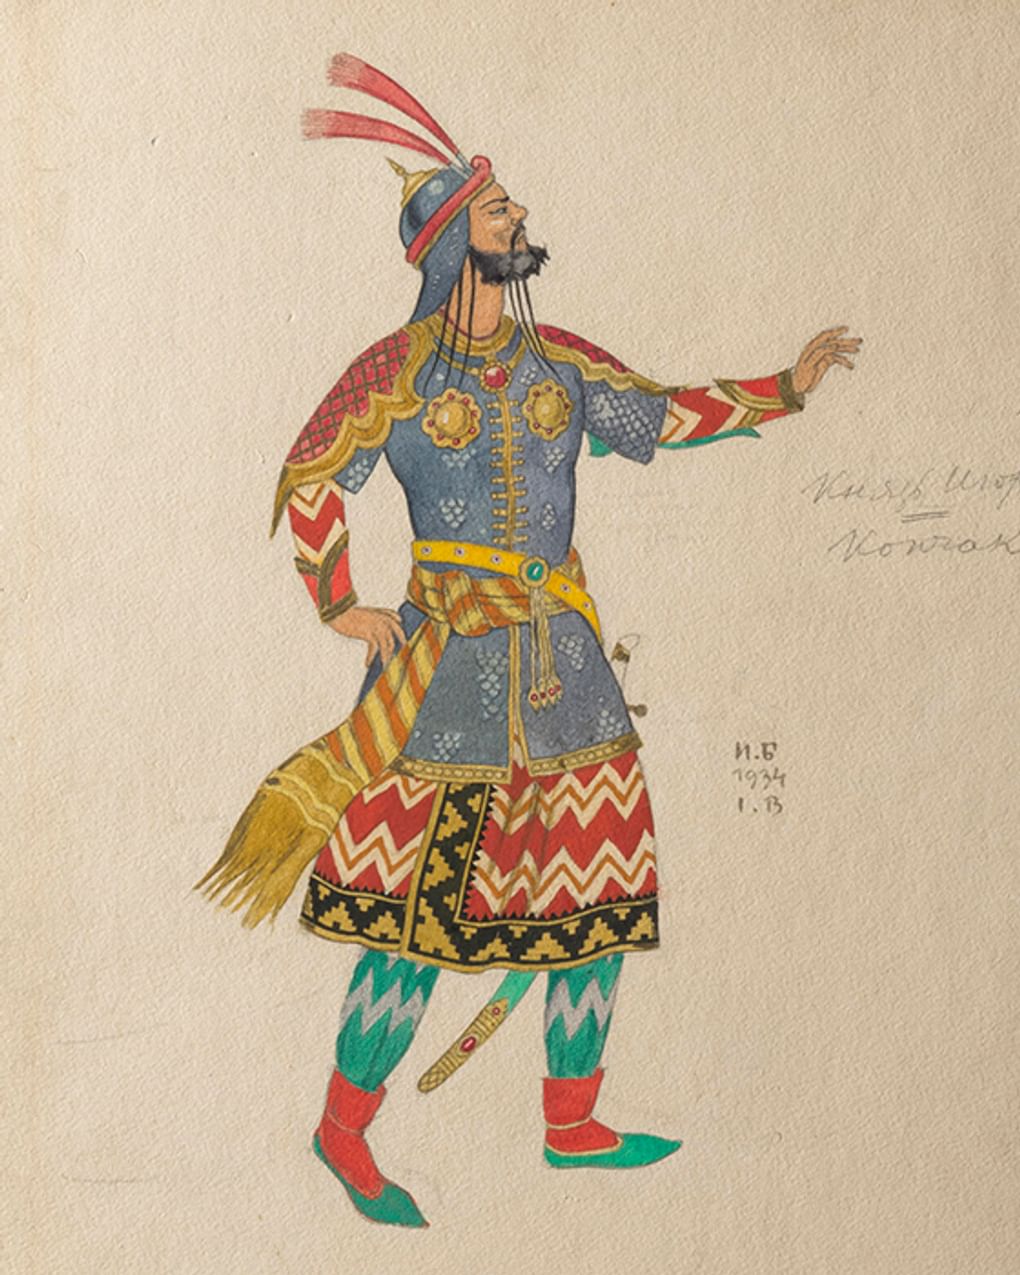 Князь Игор
Кончак
И.Б
1934
I.B